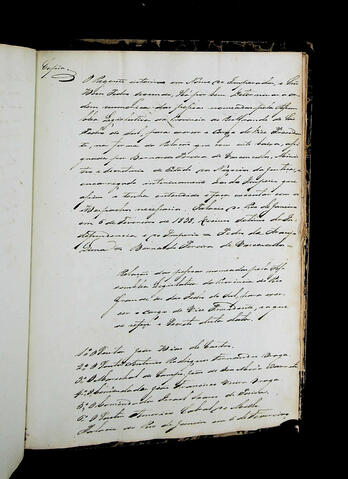 Copia
O Regente interino em Nome do Imperador, o Sñr
Dom Pedro segundo, Há por bem determinar a or
dem numerica das pessoas nomeadas pela Assem
bléa Legislativa da Provincia do Rio Grande de São
Pedro do Sul, para exercer o Cargo de Vice Presiden
te, na forma da Relação que com este baixa, assi
gnada por Bernardo Pereira de Vasconcellos, Ministro
e Secretario de Estado dos Negocios da Justiça,
encarregado interinamente dos do Imperio que
assim o tenha entendido e faça executar com os
Despachos necessarios. Palacio do Rio de Janeiro
em 6 de Fevereiro de 1838, decimo setimo da In
dependencia e do Imperio = Pedro de Araujo
Lima = Bernardo Pereira de Vasconcellos
Relação das pessoas nomeadas pela As
sembléa Legislativa da Provincia do Rio
Grande de São Pedro do Sul, para exer
cer o Cargo de Vice Presidente, a que
se refere o Decreto desta data.
1.º O Doutor João Dias de Castro
2.º O Doutor Rodrigues Fernandes Braga
3.º O Marechal de Campo João de Deos Menna Barreto
4.º O Commendador João Francisco Vieira Braga
5.º O Commendador Israel Soares de Paiva
6.º O Doutor Americo Cabral de Mello
Palacio do Rio de Janeiro em 6 de Fevereiro